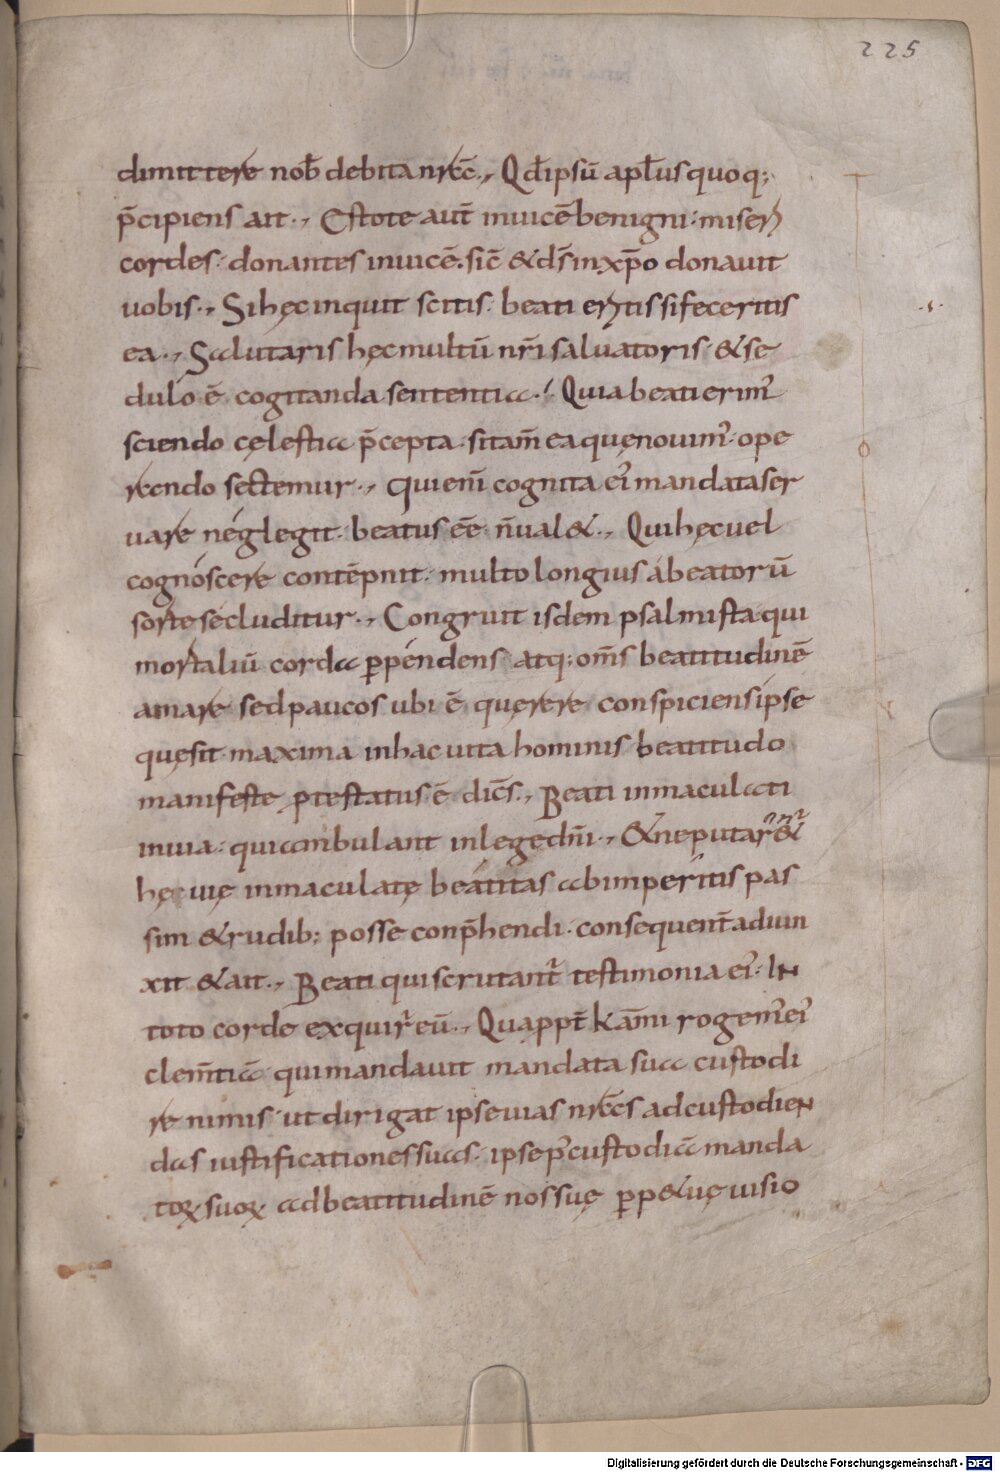 225
dimittere nob̄ debita nr̄ā., Qđ ipsū apl̄us quoq;
p̄cipiens ait., Estote aut̄ inuicē benigni· miseri
cordes· donantes inuicē. sic̄ & d̄s in xp̄o donauit
uobis., Si hęc inquit scitis· beati eritis si feceritis
ea., Salutaris hęc multū nr̄i saluatoris· & se
dulo ē cogitanda sententia. Quia beati erim᾽
sciendo cęlestia p̄cepta· si tam̄ ea quę nouim᾽· ope
rando sectemur., Qui eni᷆ cognita ei᾽ mandata ser
uare neglegit· beatus eē n̄ ual&., Qui hęc uel
cognoscere contēpnit· multo longius a beatorū
sorte secluditur., Congruit isdem psalmista qui
mortaliū corda ꝑpendens atq; om̄s beatitudinē
amare sed paucos ubi ē quęrere conspiciens ipse
quęsit· maxima in hac uita hominis beatitudo
manifeste protestatus ē dic̄s., Beati inmaculati
in uia· qui ambulant in lege dn̄i., & ne putar&
hęc uię inmaculatę beatitas ab imperitis pas
sim & rudib; posse conp̄hendi· consequent̄ adiun
xit & ait., Beati qui scrutant᾽ testimonia ei᾽· IN
toto corde exquir᾽ eū., Quapp̄t k̄ami rogem᾽ ei᾽
clem̄tiā qui mandauit mandata sua custodi
re nimis· ut dirigat ipse uias nr̄ās ad custodieN
das iustificationes suas· ipse p᾽ custodiā manda
toꝝ suoꝝ ad beatitudinē nos suę ꝑp&uę uisio
Digitalisierung gefördert durch die Deutsche Forschungsgemeinschaft - DFG